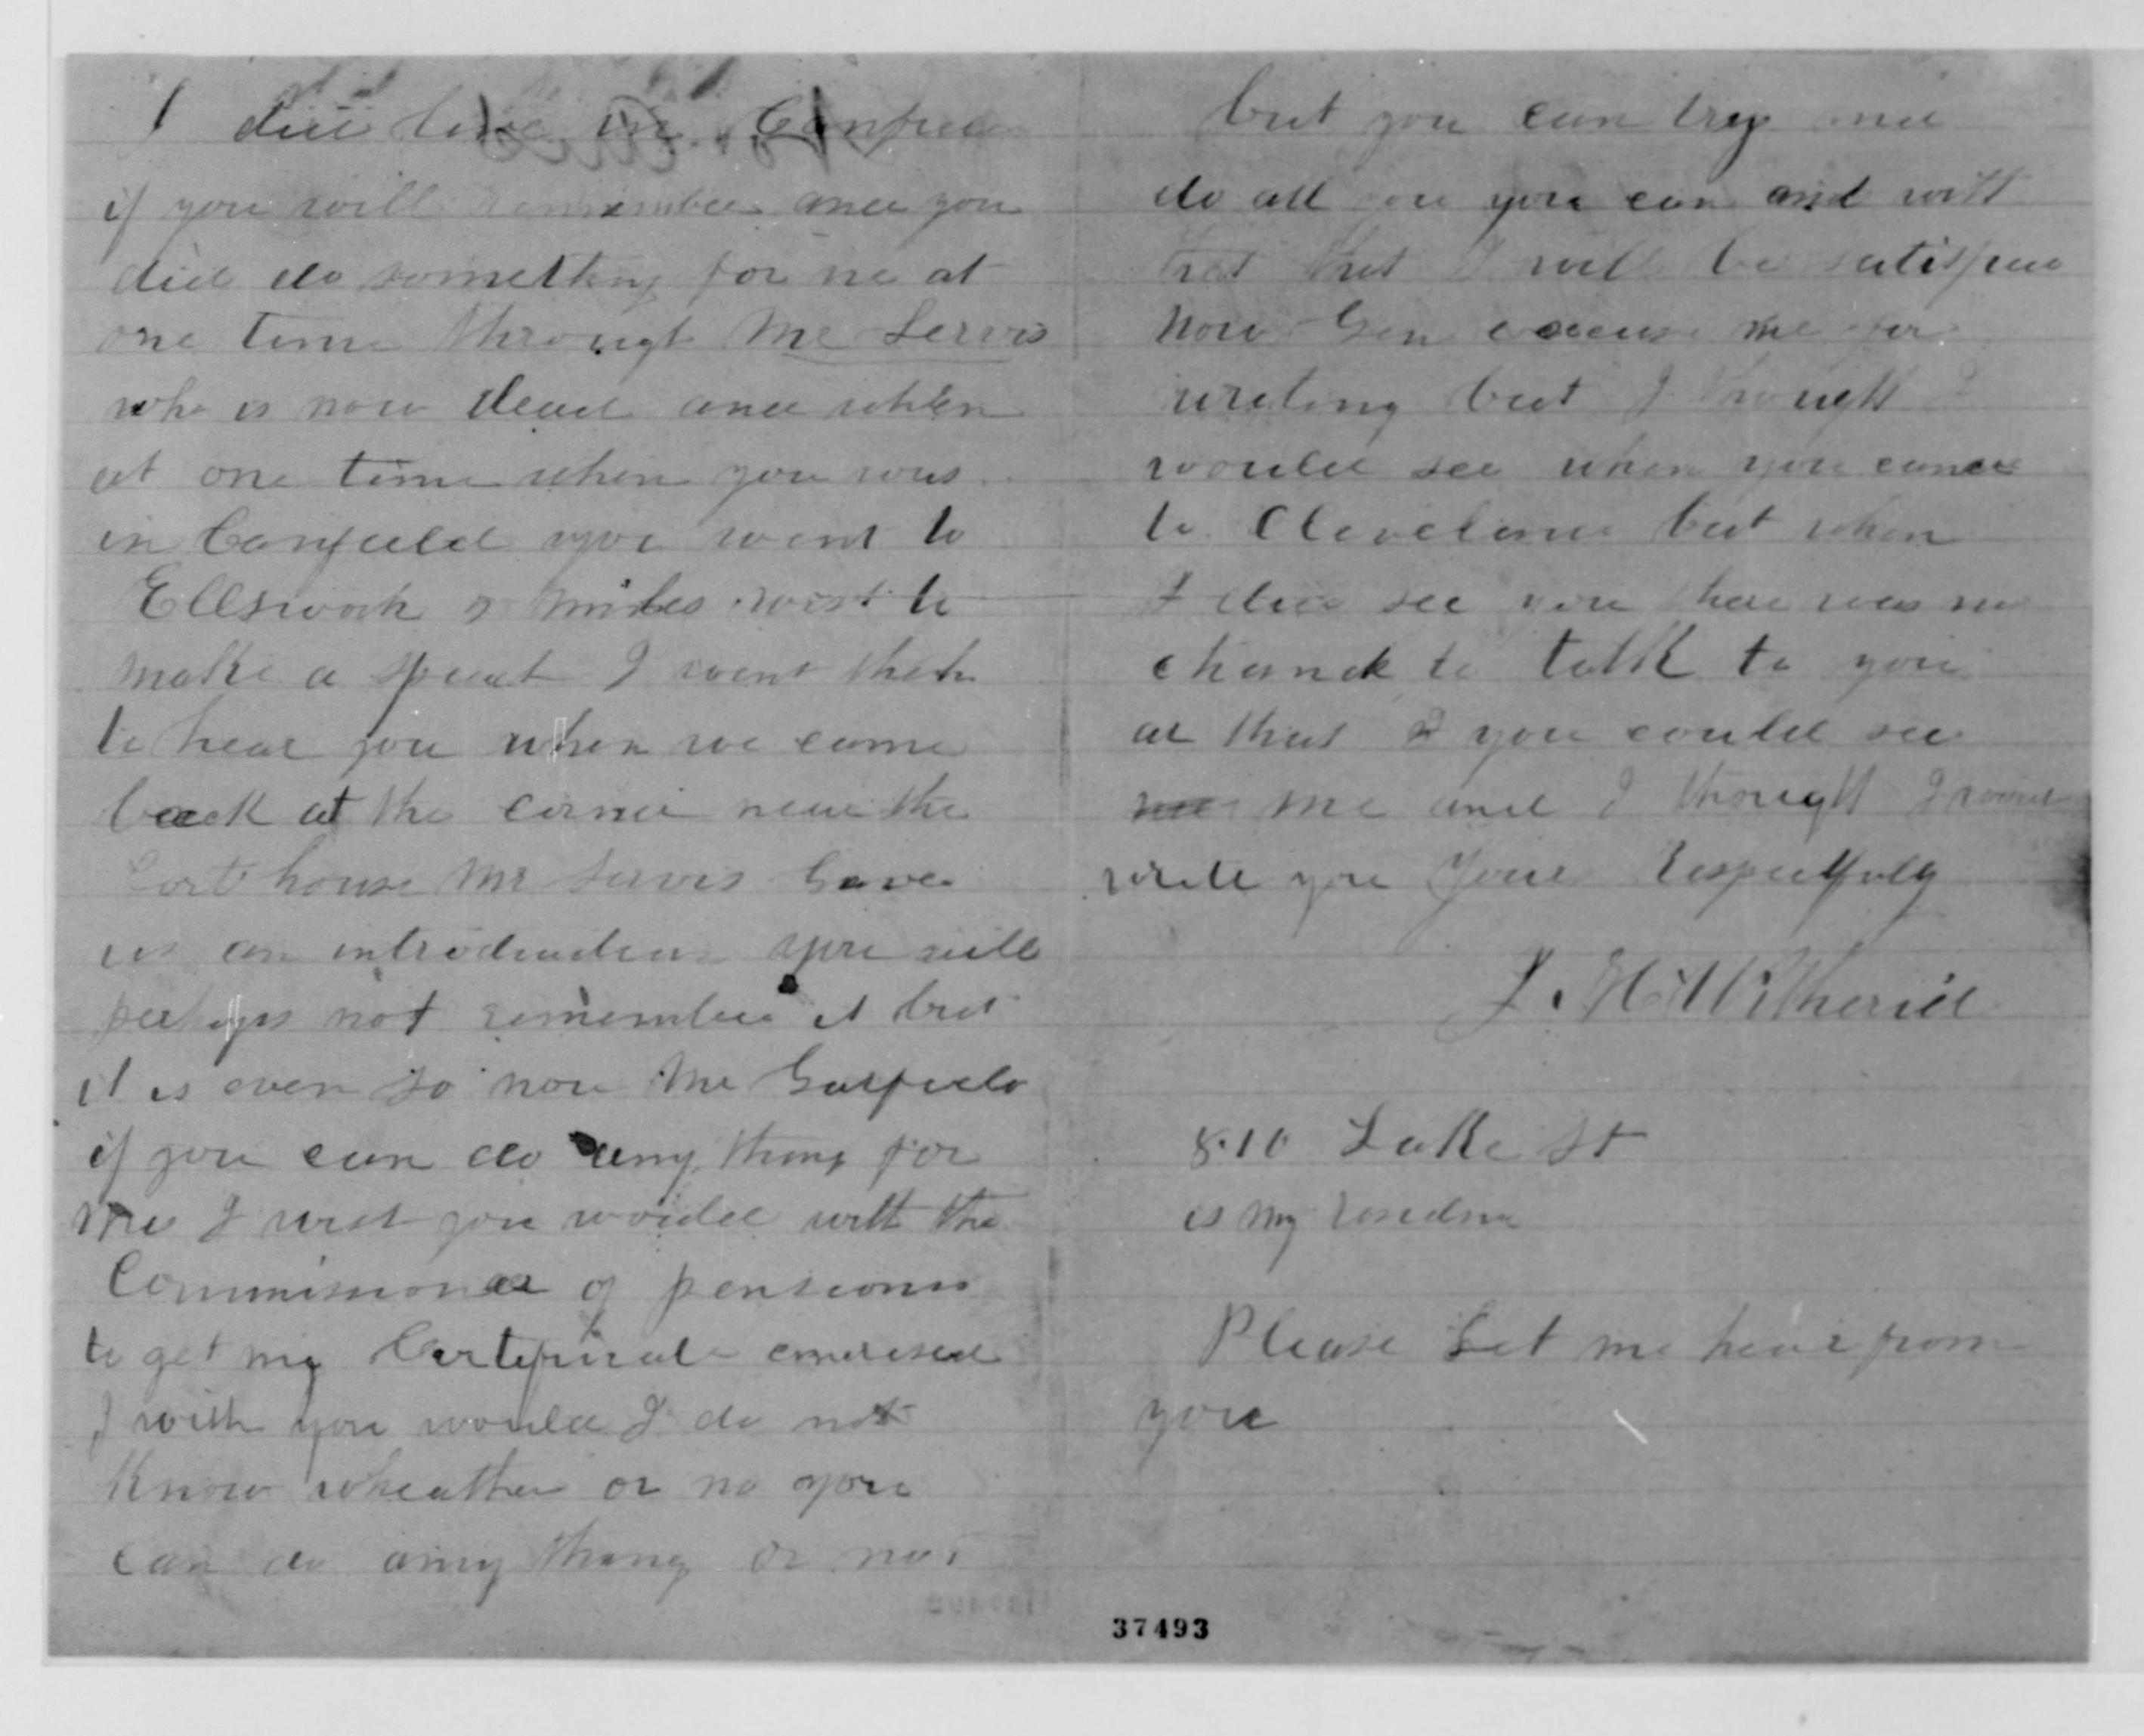 I did live in Canfield
if you will remember and you
did do something for me at
one time througt Mr Servis
who is now dead and when
at one time when you was
in Canfield you went to
Ellswoth 5 miles west to
make a speect I went theh
to hear you when we came
back at the corner near the
Cort house Mr Servis Gave
us an introduction you will
perhaps not remember it but
it is even so now Mr Garfield
if you can do any thing for
me I wist you would witt the
Commissioner of pensions
to get my Certificate
I wish you would I do not
Know wheather or no you
can do any thing or not
but you can try and
do all you can and witt
that I will be satisfied
Now Gen excuse me for
writing but I thought I
would see when you came
to Cleveland but when
I did see you there was no
chanck to talk to you
or that you could see
me and I thought I would
write you Your Respectfuly
J. H. Witherill
810 Lake St
is my
Please Let me hear from
you
37493